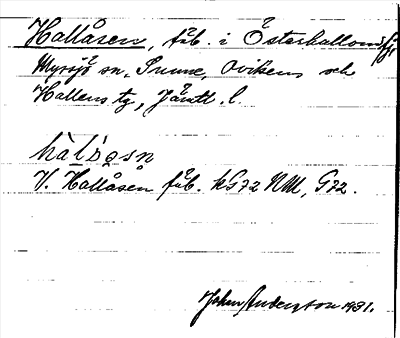 Hallåsen, fäb. i Österhallomsfj,
Myrsjö sn, Sunne, Ovikens och
Hallens tg, Jämtl. l.
hàlò̱sən
V. Hallåsen fäb. kS72 NM, G72.
John Anderson 1931.